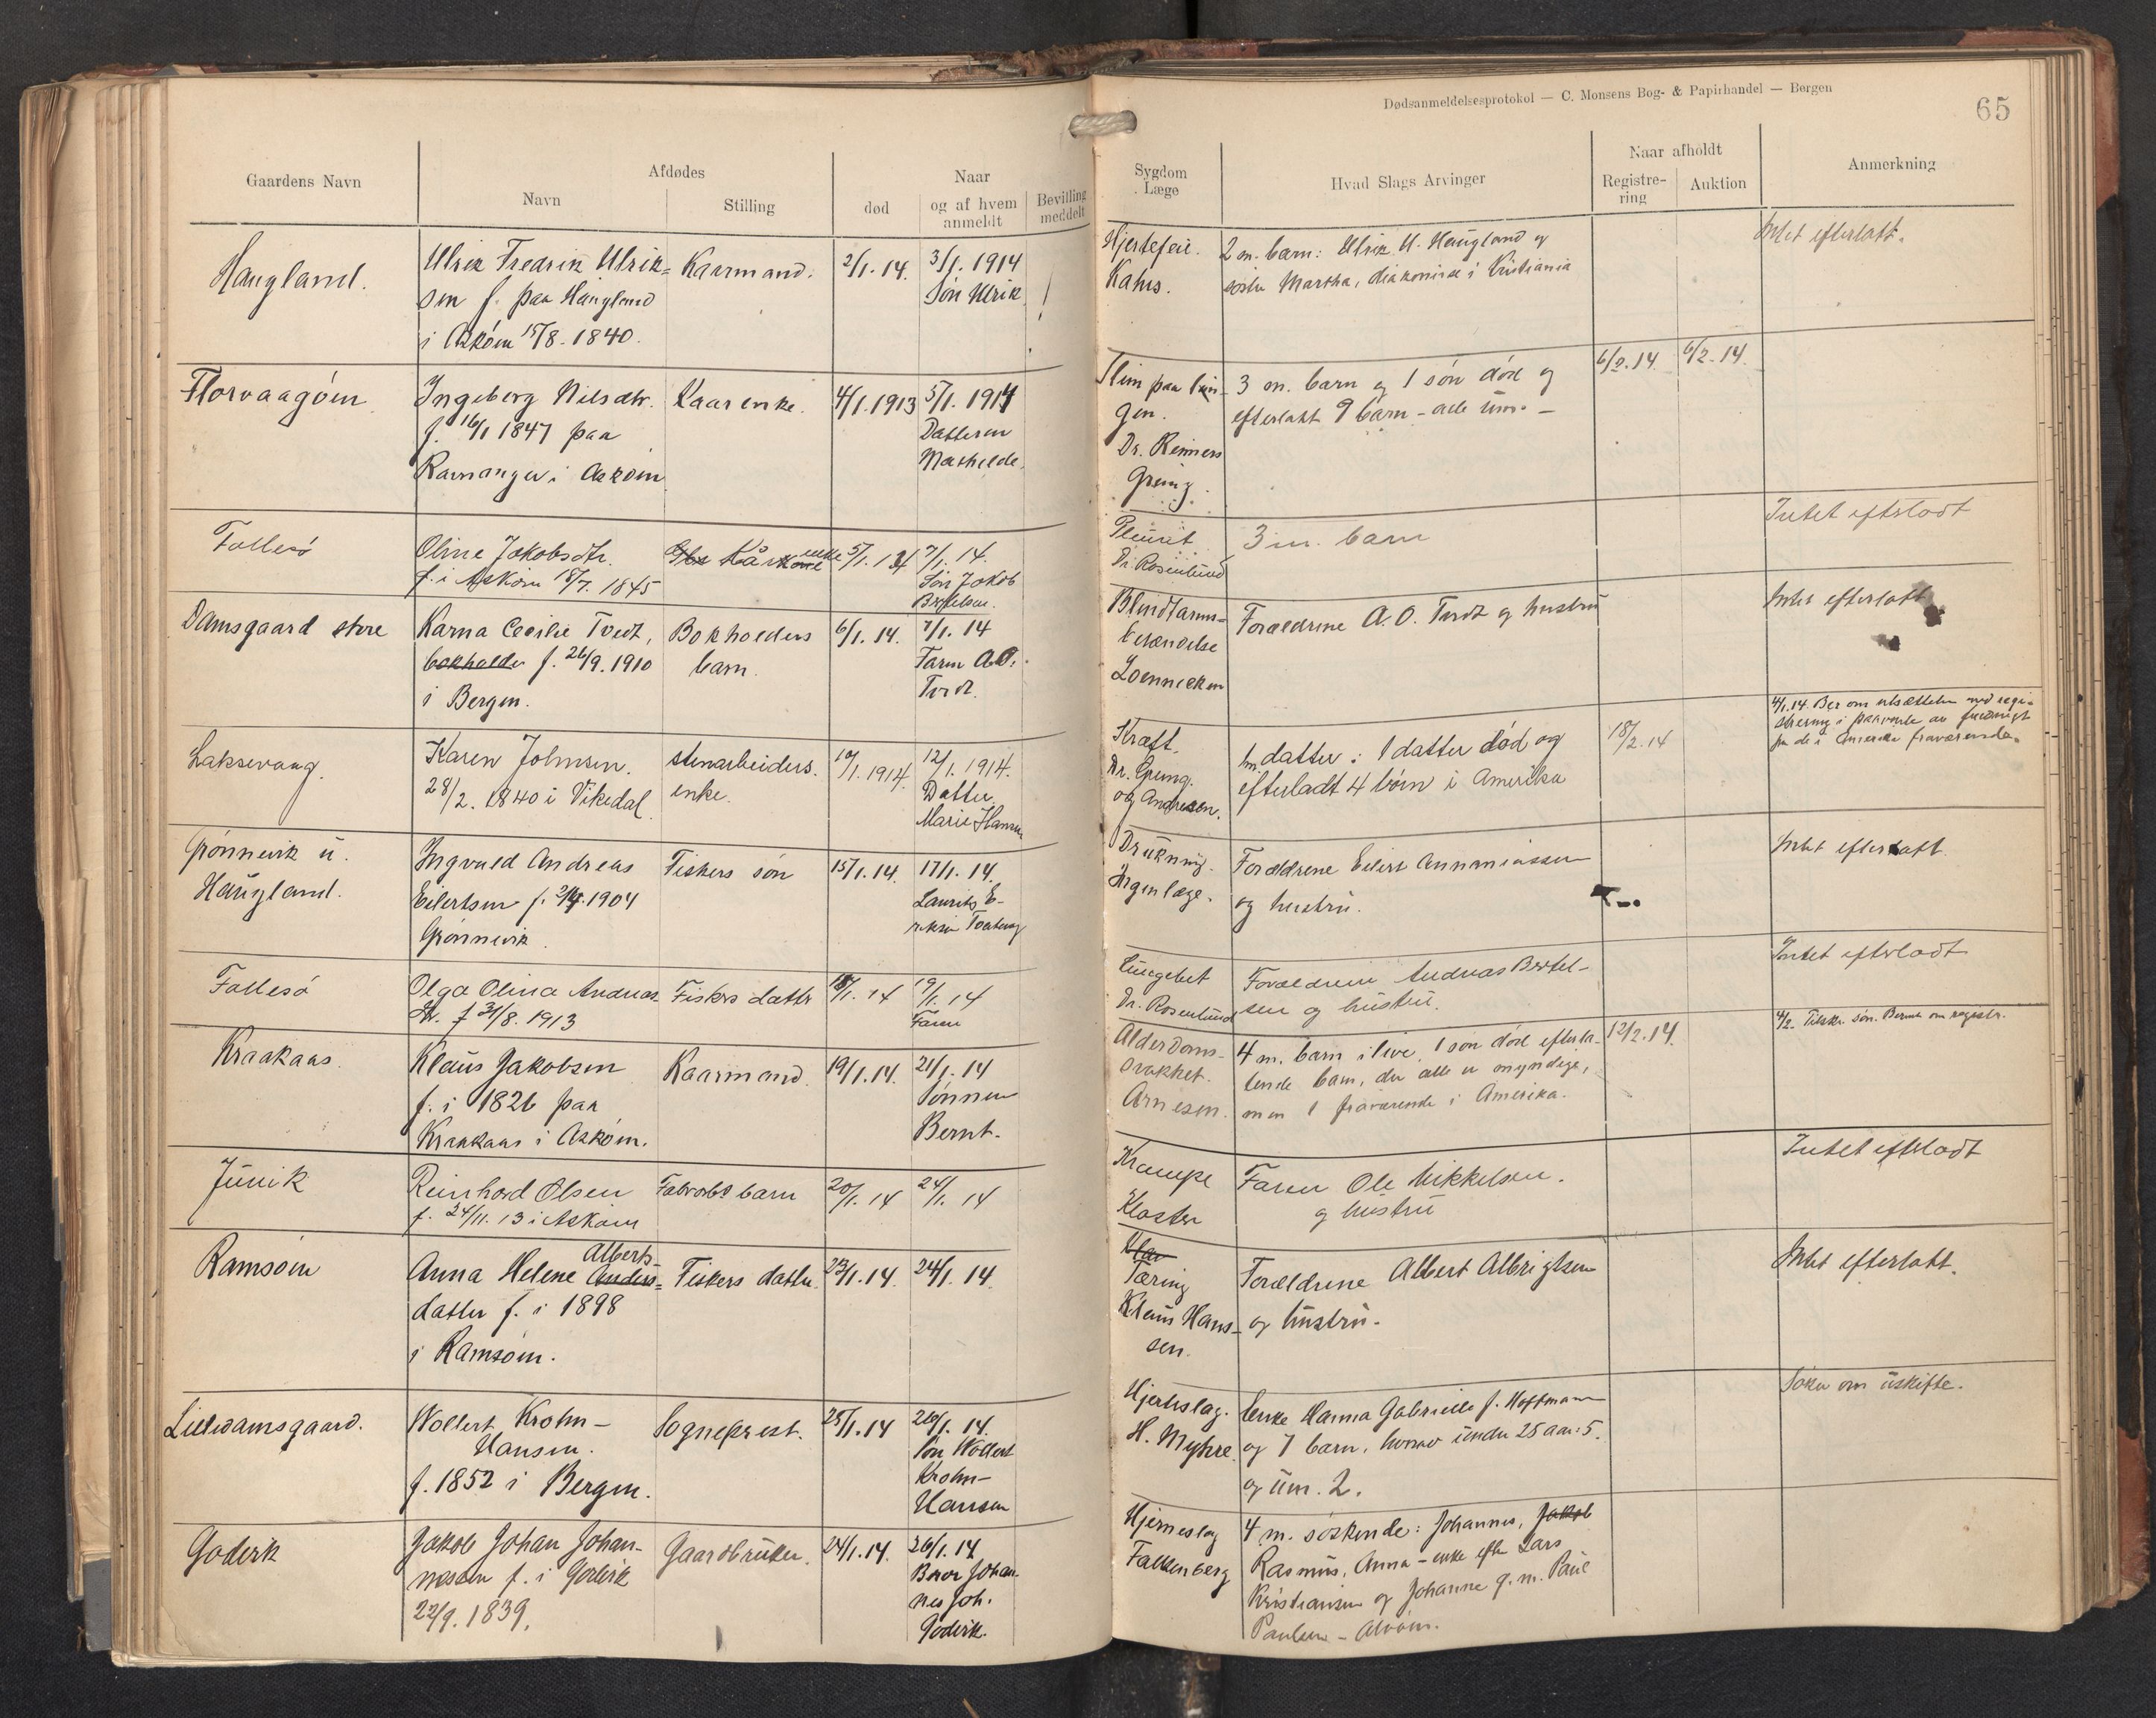 Dødsanmeldelsesprotokol — C. Monsens Bog- & Papirhandel — Bergen
65
Gaardens Navn
Afdødes
Navn
Stilling
Naar
død
og af hvem
anmeldt
Bevilling
meddelt
Sygdom
Læge
Hvad Slags Arvinger
Naar afholdt
Registre-
ring
Auktion
Anmerkning
Haugland.
Ulrik Fredrik Ulrik-
sen f. paa Haugland
i Askøin 15/8. 1840.
Kaarmand.
2/1. 14.
3/1. 1914
Søn Ulrik
Hjertefeil.
Kahrs.
2 m. barn: Ulrik U. Haugland og
søster Martha, diakonisse i Kristiania
Intet efterlatt.
Florvaagøen
Ingeborg Nilsdtr.
f. 16/1 1847 paa
Ramanger i Askøin
Kaarenke.
4/1. 1913
5/1. 1914
Datteren
Mathilde.
Slim paa lun-
gen.
Dr. Reimers
Greing.
3 m. barn og 1 søn død og
efterlatt 9 barn - alle um. -
6/2. 14.
6/2. 14.
Follesø
Oline Jakobsdtr.
f. i Askøin 18/7. 1845
Kårkone enke
5/1. 14
7/1. 14.
Søn Jakob
Bertelsen.
Pleurit
Dr. Rosenlund
3 m. barn
Intet efterladt
Damsgaard store
Karna Cecilie Tvedt,
bokholder f. 26/9. 1910
i Bergen.
Bokholders
barn.
6/1. 14.
7/1. 14
Faren A.O.
Tvedt.
Blindtarms-
betændelse
Loennecken
Forældrene A. O. Tvedt og hustru
Intet efterlatt
Laksevaag.
Karen Johnsen.
28/2. 1840 i Vikedal
stenarbeiders.
enke.
10/1. 1914.
12/1. 1914.
Datter
Marie Hansen
Kræft.
Dr. Greing.
og Andresen.
1 m. datter: 1 datter død og
efterladt 4 børn i Amerika
18/2. 14
4/1. 14. Ber om utsættelse med regi-
strering i paavente av fuldmagt
fra de i Amerika fraværende.
Grønnevik u.
Haugland.
Ingvald Andreas
Eilertsen f. 1904
Grønnevik.
Fiskers søn
15/1. 14.
17/1. 14.
Laurits E-
Drukning.
Ingen læge.
Forældrene Eilert Annaniassen
og hustru.
Intet efterlatt.
Follesø
Olga Olina Andreas-
dtr. f 31/8. 1913
Fiskers datter
18/1. 14
19/1. 14
Faren
Lungebet
Dr. Rosenlund
Forældrene Andreas Bertel-
sen og hustru.
Intet efterladt
Kraakaas.
Klaus Jakobsen
f. i 1826 paa
Kraakaas i Askøin.
Kaarmand.
19/1. 14.
21/1. 14
Sønnen
Bernt.
Alderdoms-
svakhet.
Arnesen.
4 m. barn ilive, 1 søn død efterla-
tende barn, der alle er myndige,
men 1 fraværende i Amerika.
12/2. 14.
4/2. Tilskr. søn. Bernt om registr.
Juvik
Reinhard Olsen
f. 24/11. 13 i Askøin
Fabrarbs barn
20/1. 14
24/1. 14
Krampe
Kloster
Faren Ole Mikkelsen.
og hustru
Intet efterladt
Ramsøin
Alberts-
Anna Helene Anders-
datter f. i 1898
i Ramsøin.
Fiskers datter.
23/1. 14.
24/1. 14.
Tæring
Klaus Hans-
sen.
Forældrene Albert Albrigtsen
og hustru.
Intet efterlatt.
Lilledamsgaard.
Wollert Krohn-
Hansen.
f. 1852 i Bergen.
Sogneprest.
25/1. 14
26/1. 14.
Søn Wollert
Krohn-
Hansen
Hjerteslag.
H. Myhre.
Enke Hanna Gabrielle f. Hoffmann
og 7 barn, hvorav under 25 aar: 5.
og um. 2.
Søker om uskifte.
Goderk
Jakob Johan Johan-
nessen f. i Goderk
22/9. 1839.
Gaardbruker.
24/1. 14.
26/1. 14
Bror Johan-
nes Joh.
Goderk.
Hjerneslag
Falkenberg
4 m. søskende: Johannes, Jakob
Rasmus, Anna - enke efter Lars
Kristiansen og Johanne g. m. Paul
Paulsen - Alvøin.